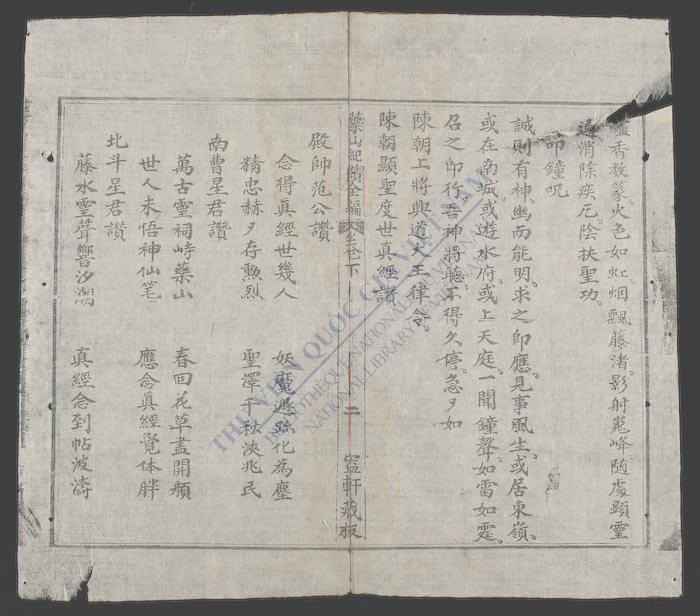 爐香散篆。火色如虹。烟飄藤渚。影射嵬峰。随處顕靈
通。消除疾厄。陰扶聖功。
叩鐘呪
誠則有神。幽而能明。求之即應。見事風生。或居東嶺。
或在南城。或遊水府。或上天庭。一聞鐘聲。如雷如霆。
召之即行。吾神將聽。不得久停。急々如
陳朝上將興道大王律令。
陳朝顯聖度世真經讚
藥山紀績全編 卷下 二 盗軒藏板
殿師范公讚
念得真經世幾人 妖魔遯跡化為塵
精忠赫々存勲烈 聖澤千秋浹兆民
南曹星君讚
萬古靈祠峙藥山 春回花草盡開顏
世人未悟神仙笔 應念真經覺体胖
北斗星君讚
藤水靈聲響汐潮 真經念到帖波濤
THƯ VIỆN QUỐC GIA VIỆT NAM
BIBLIOTHÈQUE NATIONALE DU VIETNAM
NATIONAL LIBRARY OF VIETNAM